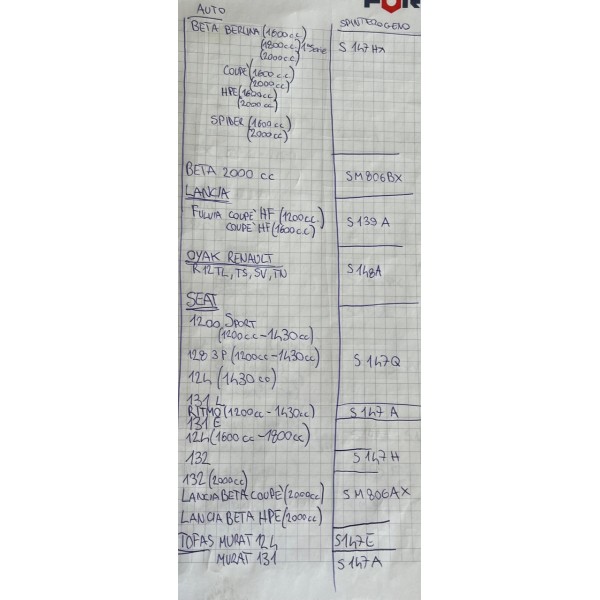 FOR
AUTO
SPINTEROGENO
BETA BERLINA (1600cc)
(1800cc) 1ª Serie
(2000cc)
S147Hx
COUPÉ (1600cc)
(2000cc)
HPE (1600cc)
(2000cc)
SPIDER (1600cc)
(2000cc)
BETA 2000 cc
SM806BX
LANCIA
FULVIA COUPÈ HF (1200cc.
COUPÈ HF (1600cc)
S139A
OYAK RENAULT
R12TL, TS, SV, TN
S148A
SEAT
1200 SPORT
(1200cc-1430cc)
128 3P. (1200cc-1430cc)
S147Q
124 (1430cc)
131 L
RITMO (1200cc-1430cc)
S147A
131 E
124 (1600cc-1800cc)
132
S147H
132 (2000cc)
LANCIA BETA COUPÈ (2000cc)
SM806AX
LANCIA BETA HPE (2000cc)
TOFAS MURAT 124
S147E
MURAT 131
S147A